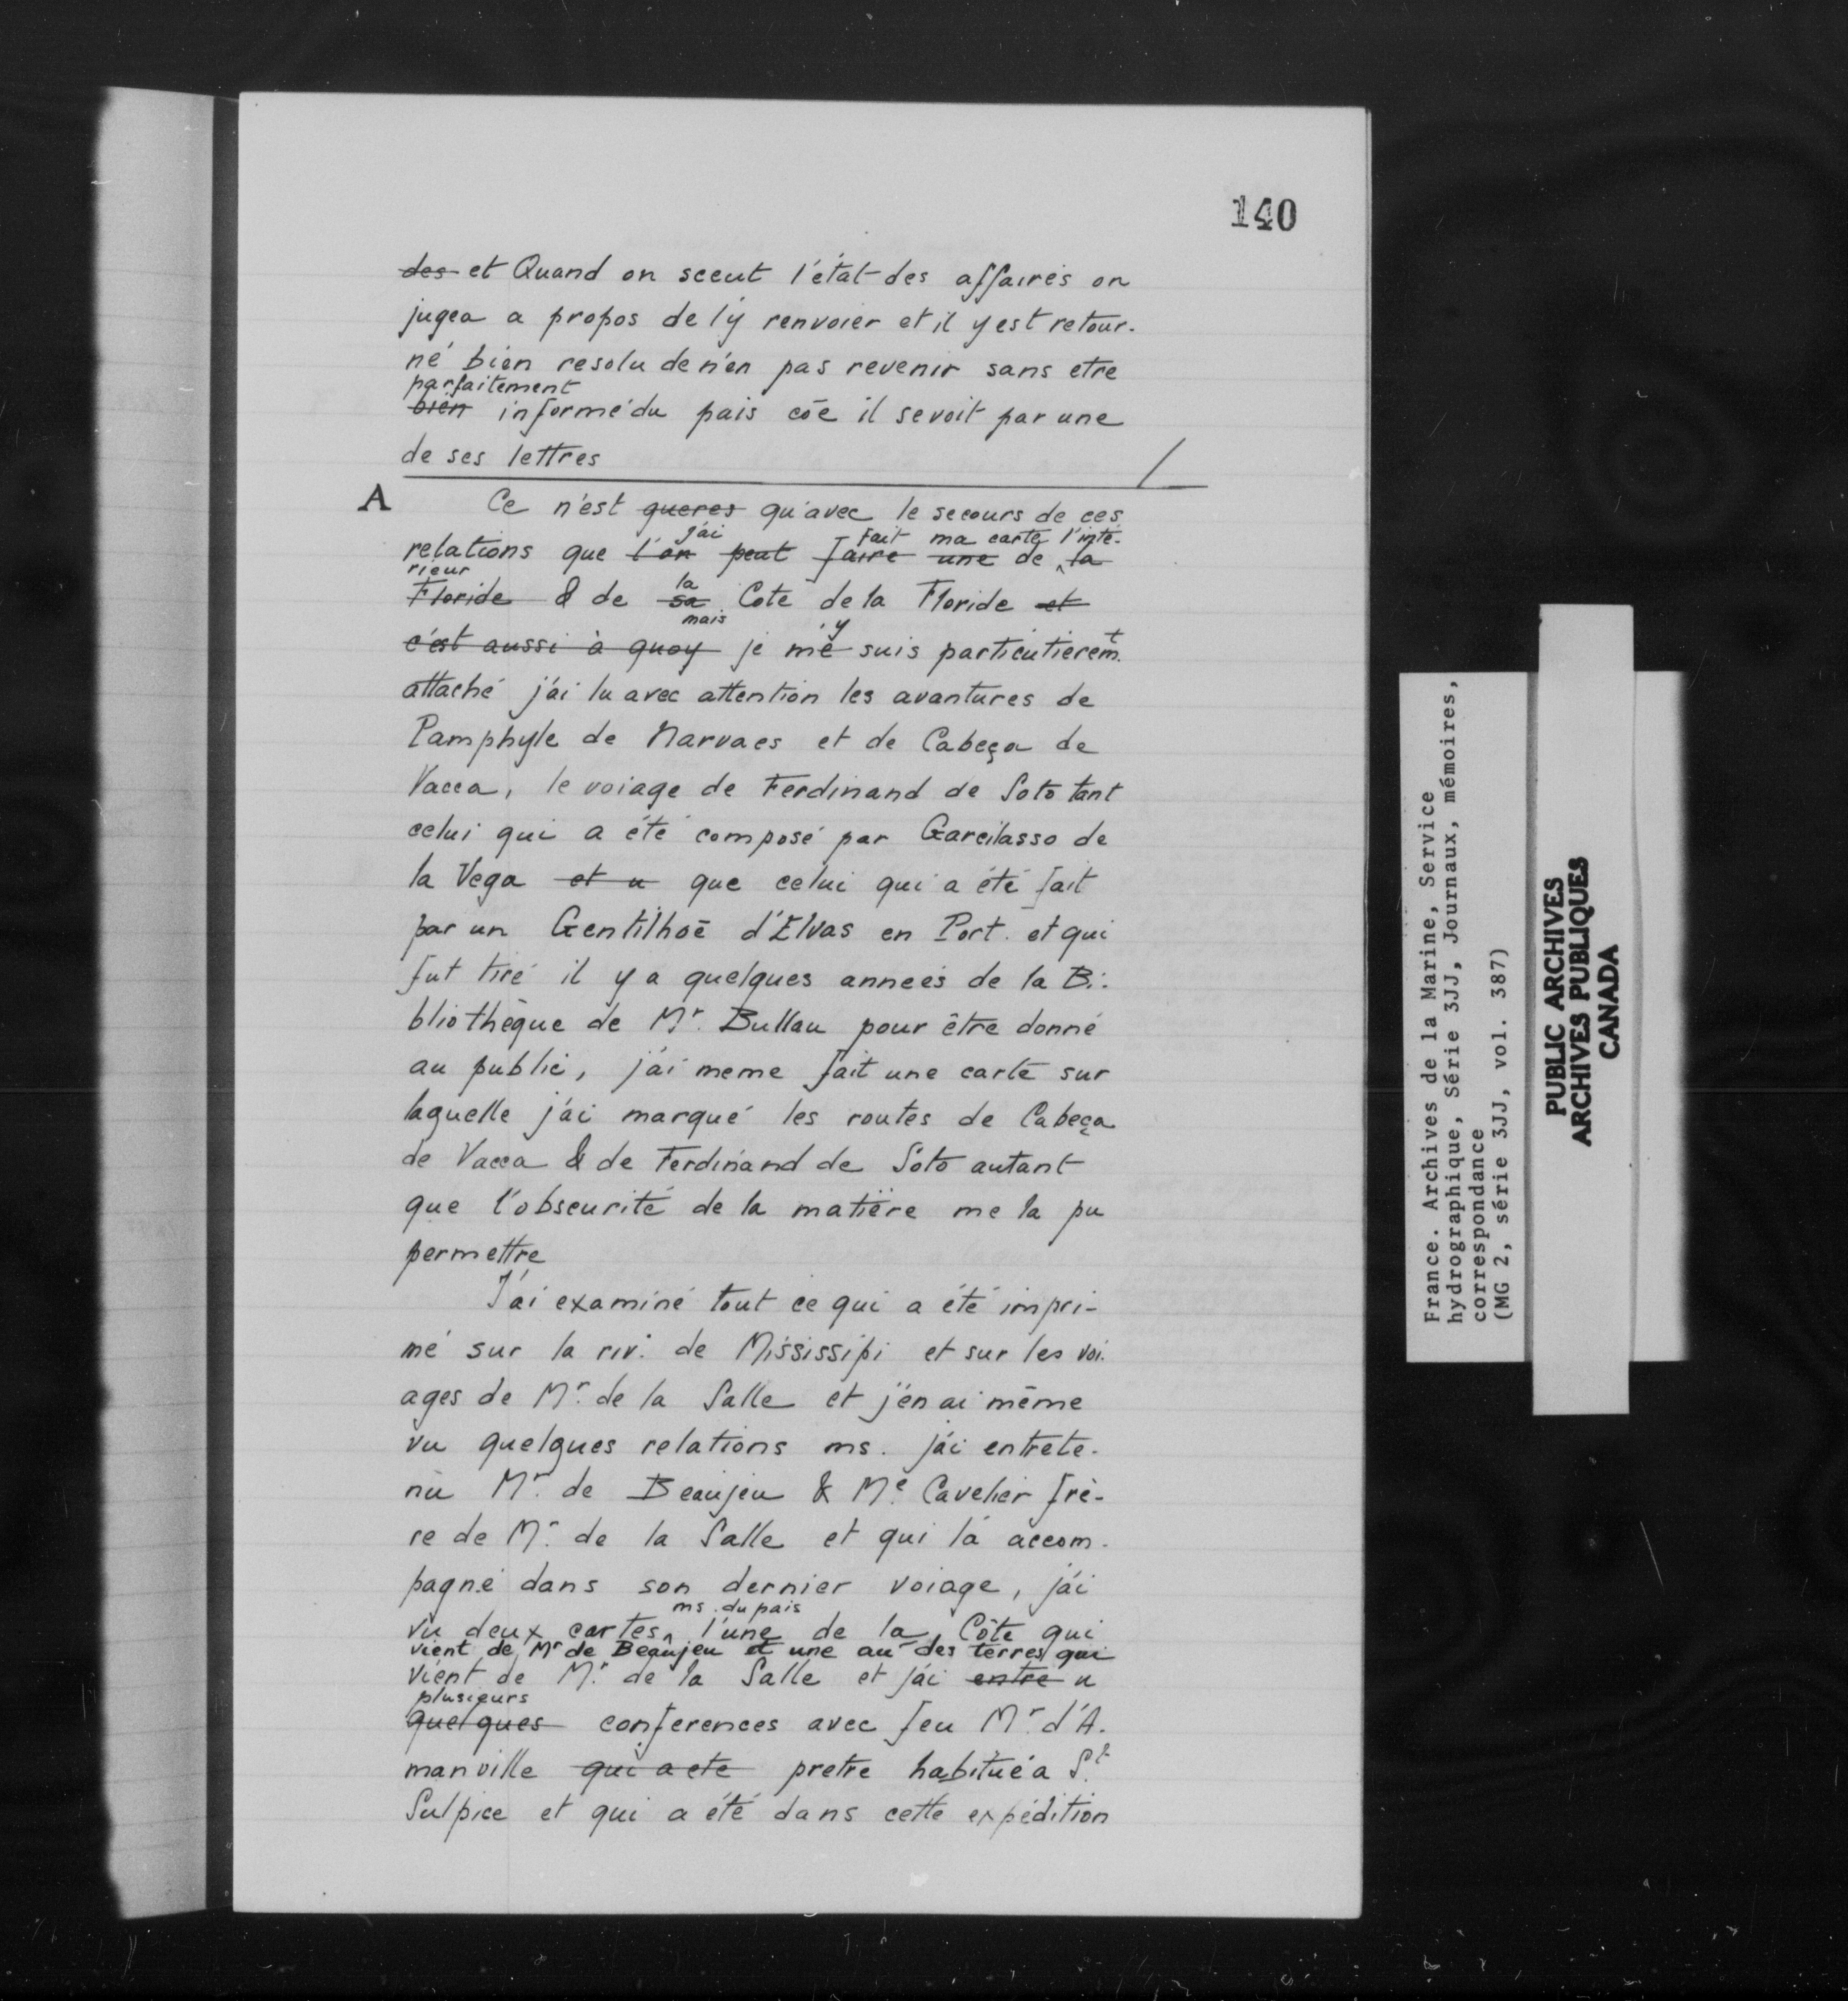 140
des et Quand on sceut l'état des affaires on
jugea a propos de l'y renvoier et il y est retour-
né bien resolu de n'en pas revenir sans etre
parfaitement
bien informé du pais cōe il se voit par une
de ses lettres
A Ce n'est gueres qu'avec le secours de ces
j'ai fait ma carte l'inte-
relations que l'on peut faire une de la
rieur la
Floride & de sa Cote de la Floride et
mais y
c'est aussi à quoy je m'e suis particulierem.t
attaché j'ai lu avec attention les avantures de
Pamphyle de Narvaes et de Cabeça de
Vacca, le voiage de Ferdinand de Soto tant
celui qui a été composé par Garcilasso de
la Vega et u que celui qui a été fait
par un Gentilhōe d'Elvas en Port. et qui
fut tiré il y a quelques années de la Bi-
bliothèque de Mr. Bullau pour être donné
au public, j'ai meme fait une carte sur
laquelle j'ai marqué les routes de Cabeça
de Vacca & de Ferdinand de Soto autant
que l'obscurité de la matière me la pu
permettre
J'ai examiné tout ce qui a été impri-
mé sur la riv. de Mississipi et sur les voi-
ages de Mr. de la Salle et j'en ai même
vu quelques relations ms. j'ai entrete-
nu Mr. de Beaujeu & Me. Cavelier frè-
re de Mr. de la Salle et qui l'a accom-
pagné dans son dernier voiage, j'ai
ms. du pais
vu deux cartes l'une de la Côte qui
vient de Mr de Beaujeu et une au des terres qui
vient de Mr. de la Salle et j'ai entre u
plusieurs
quelques conferences avec feu Mr. d'A-
manville qui a ete pretre habitué a St.
Sulpice et qui a été dans cette expédition
France. Archives de la Marine, Service
hydrographique, Série 3JJ, Journaux, mémoires,
correspondance
(MG 2, série 3JJ, vol. 387)
PUBLIC ARCHIVES
ARCHIVES PUBLIQUES
CANADA